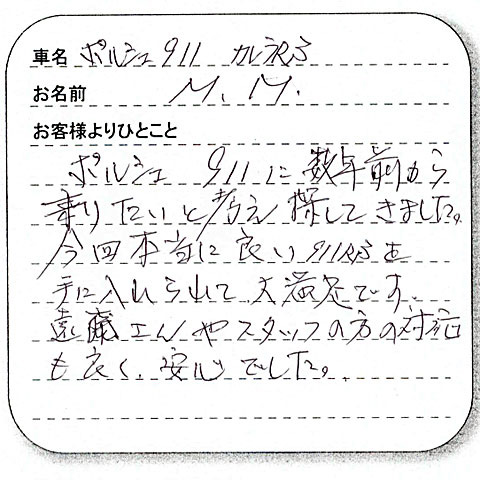 車名 ポルシェ 911 カレラRS
お名前 M. M.
お客様よりひとこと
ポルシェ 911に数年前から
乗りたいと考え探してきました。
今回本当に良い911RSを
手に入れられて大満足です。
遠藤さんやスタッフの方の対応
も良く、安心でした。